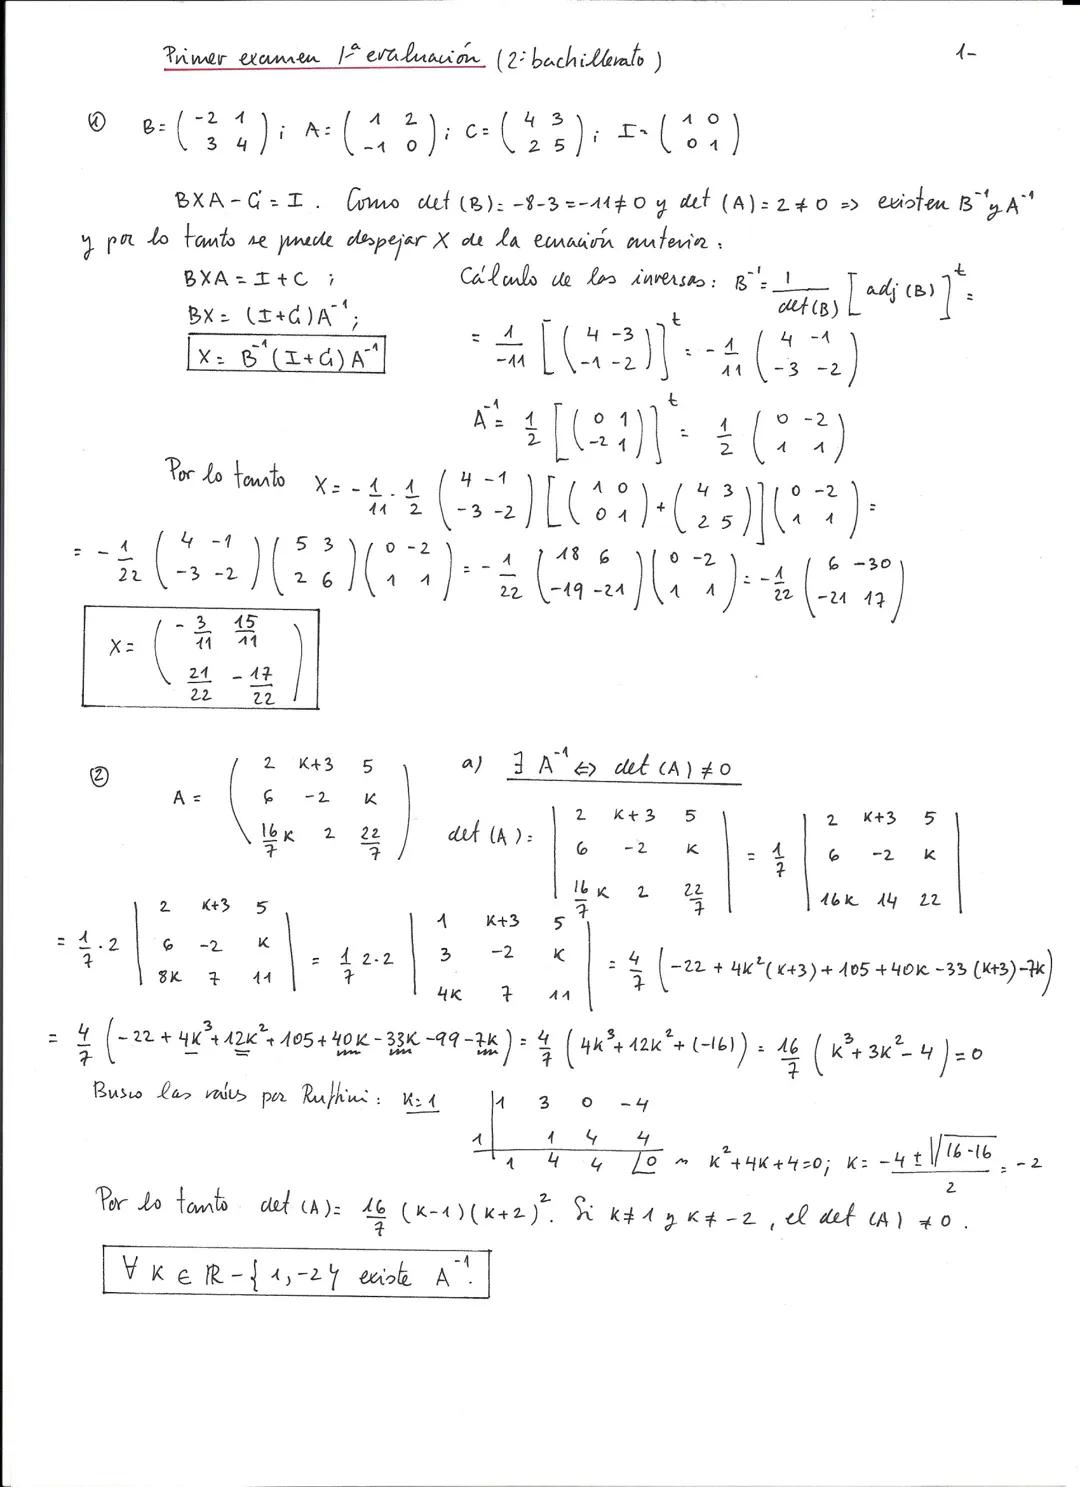 Primer examen 1ª evaluación (2º bachillerato) 1-
① B = ( -2 1 ; 3 4 ) ; A = ( 1 2 ; -1 0 ) ; C = ( 4 3 ; 2 5 ) ; I = ( 1 0 ; 0 1 )
BXA - C = I . Como det (B) = -8-3 = -11 ≠ 0 y det (A) = 2 ≠ 0 => existen B⁻¹ y A⁻¹
y por lo tanto se puede despejar X de la ecuación anterior :
BXA = I + C ; Cálculo de las inversas : B⁻¹ = 1/det(B) [ adj (B) ]ᵗ =
BX = (I+C) A⁻¹ ; = 1/-11 [ ( 4 -3 ; -1 -2 ) ]ᵗ = - 1/11 ( 4 -1 ; -3 -2 )
X = B⁻¹ (I+C) A⁻¹
A⁻¹ = 1/2 [ ( 0 1 ; -2 1 ) ]ᵗ = 1/2 ( 0 -2 ; 1 1 )
Por lo tanto X = - 1/11 · 1/2 ( 4 -1 ; -3 -2 ) [ ( 1 0 ; 0 1 ) + ( 4 3 ; 2 5 ) ] ( 0 -2 ; 1 1 ) =
= - 1/22 ( 4 -1 ; -3 -2 ) ( 5 3 ; 2 6 ) ( 0 -2 ; 1 1 ) = - 1/22 ( 18 6 ; -19 -21 ) ( 0 -2 ; 1 1 ) = - 1/22 ( 6 -30 ; -21 17 )
X = ( - 3/11 15/11 ; 21/22 - 17/22 )
② A = ( 2 K+3 5 ; 6 -2 K ; 16/7 K 2 22/7 ) a) ∃ A⁻¹ <=> det (A) ≠ 0
det (A) = | 2 K+3 5 ; 6 -2 K ; 16/7 K 2 22/7 | = 1/7 | 2 K+3 5 ; 6 -2 K ; 16K 14 22 |
= 1/7 · 2 | 2 K+3 5 ; 6 -2 K ; 8K 7 11 | = 1/7 2·2 | 1 K+3 5 ; 3 -2 K ; 4K 7 11 | = 4/7 ( -22 + 4K²(K+3) + 105 + 40K - 33 (K+3) - 7K )
= 4/7 ( -22 + 4K³ + 12K² + 105 + 40K - 33K - 99 - 7K ) = 4/7 ( 4K³ + 12K² + (-16) ) = 16/7 ( K³ + 3K² - 4 ) = 0
Busco las raíces por Ruffini : K=1 | 1 3 0 -4
1 | 1 4 4
1 4 4 |0 ~ K² + 4K + 4 = 0 ; K = (-4 ± √(16-16))/2 = -2
Por lo tanto det (A) = 16/7 (K-1) (K+2)². Si K≠1 y K≠-2, el det (A) ≠ 0 .
∀ K ∈ ℝ - { 1, -2 } existe A⁻¹.